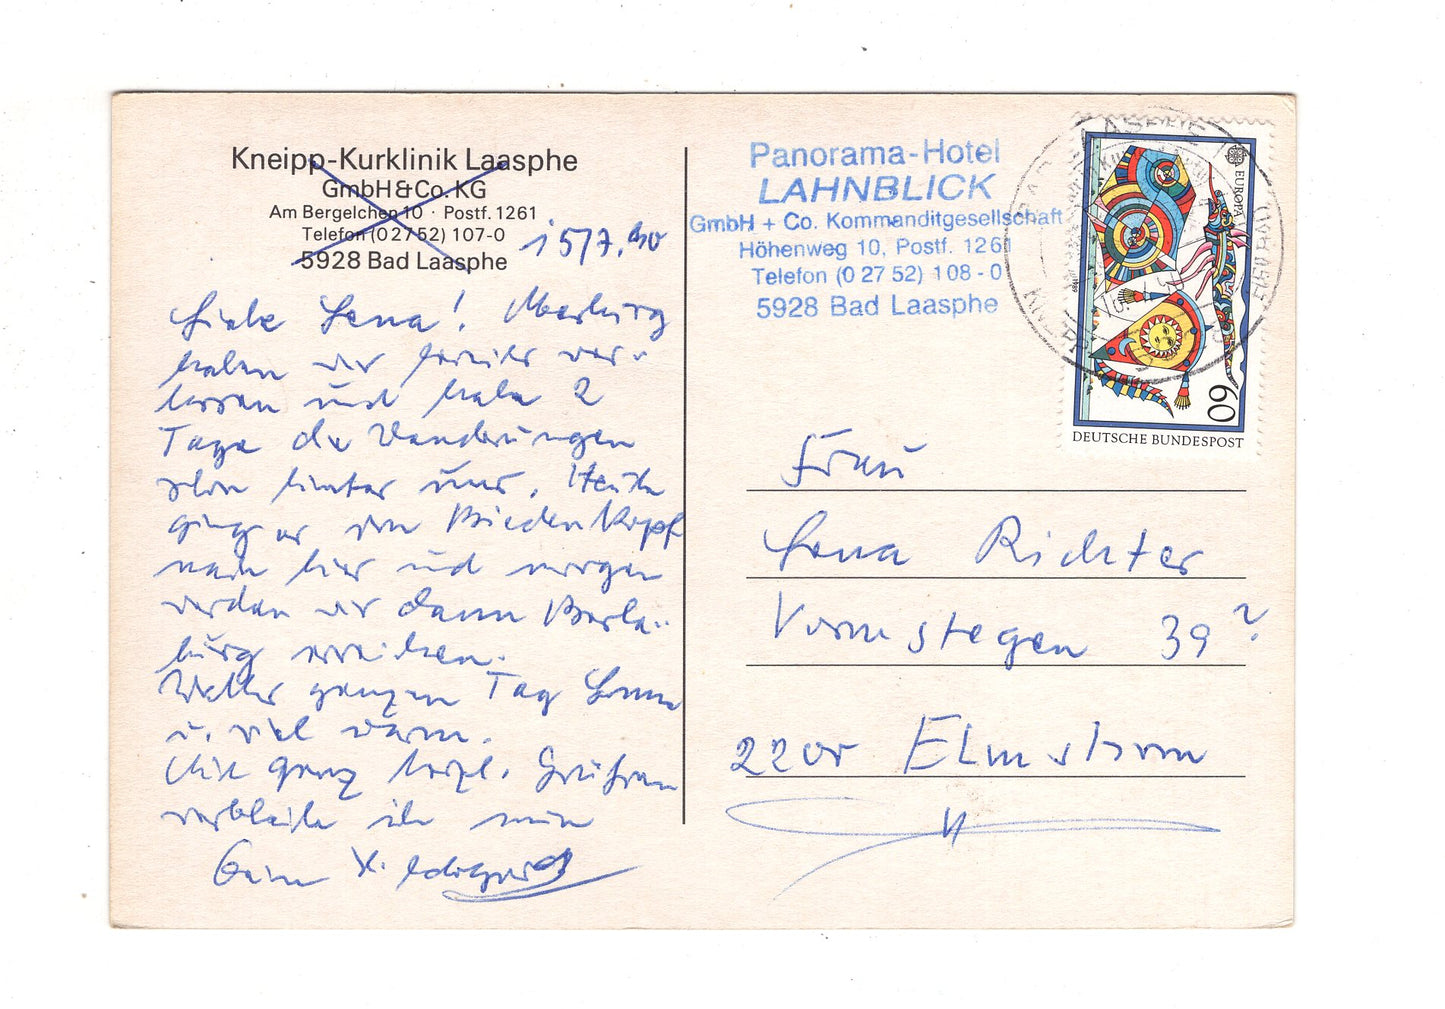 Kneipp-Kurklinik Laasphe
GmbH & Co. KG
Am Bergelchen 10 · Postf. 1261
Telefon (02752) 107-0
5928 Bad Laasphe
15/7.90
Liebe Lena! Marburg
haben wir bereits ver-
lassen und habe 2
Tage der Wanderungen
schon hinter uns. Heute
ging es von Biedenkopf
nach hier und morgen
werden wir dann Berle-
burg erreichen.
Wetter ganzen Tag Sonne
u. viel warm.
Mit ganz herzl. Grüßen
verbleibe ich nun
Panorama-Hotel
LAHNBLICK
GmbH + Co. Kommanditgesellschaft
Höhenweg 10, Postf. 1261
Telefon (0 27 52) 108-0
5928 Bad Laasphe
EUROPA
60
DEUTSCHE BUNDESPOST
Frau
Lena Richter
Vormstegen 39?
2200 Elmshorn